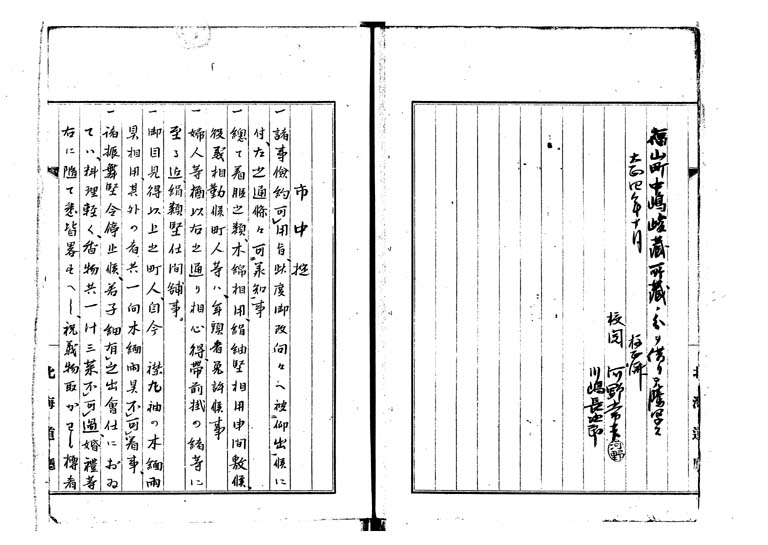 福山町中嶋峻蔵所蔵ノ分ヲ借リテ謄写ス
大正四年十月
校正済
校閲 河野常吉 河野
川嶋長次郎
市中掟
一 諸事倹約可用旨、此度御改向々へ被仰出候に
付、左之通條々可承知事
一 總て着服之類、木綿相用、絹紬堅相用申間敷候、
役義相勤候町人等ハ、年頭者免許候事
一 婦人等猶以右之通り相心得、帶前掛の緒等に
至る迄絹類堅仕間鋪事。
一 御目見得以上之町人、自今 襟丸袖の木綿雨
具相用、其外の者共一向木綿雨具不可着事、
一 諸振舞堅令停止候、若子細有之出會仕におゐ
てハ、料理軽く、肴物共一汁三菜不可過、婚禮等
右に随て悉皆畧すへし、祝義物取かわし、樽肴
北海道廳